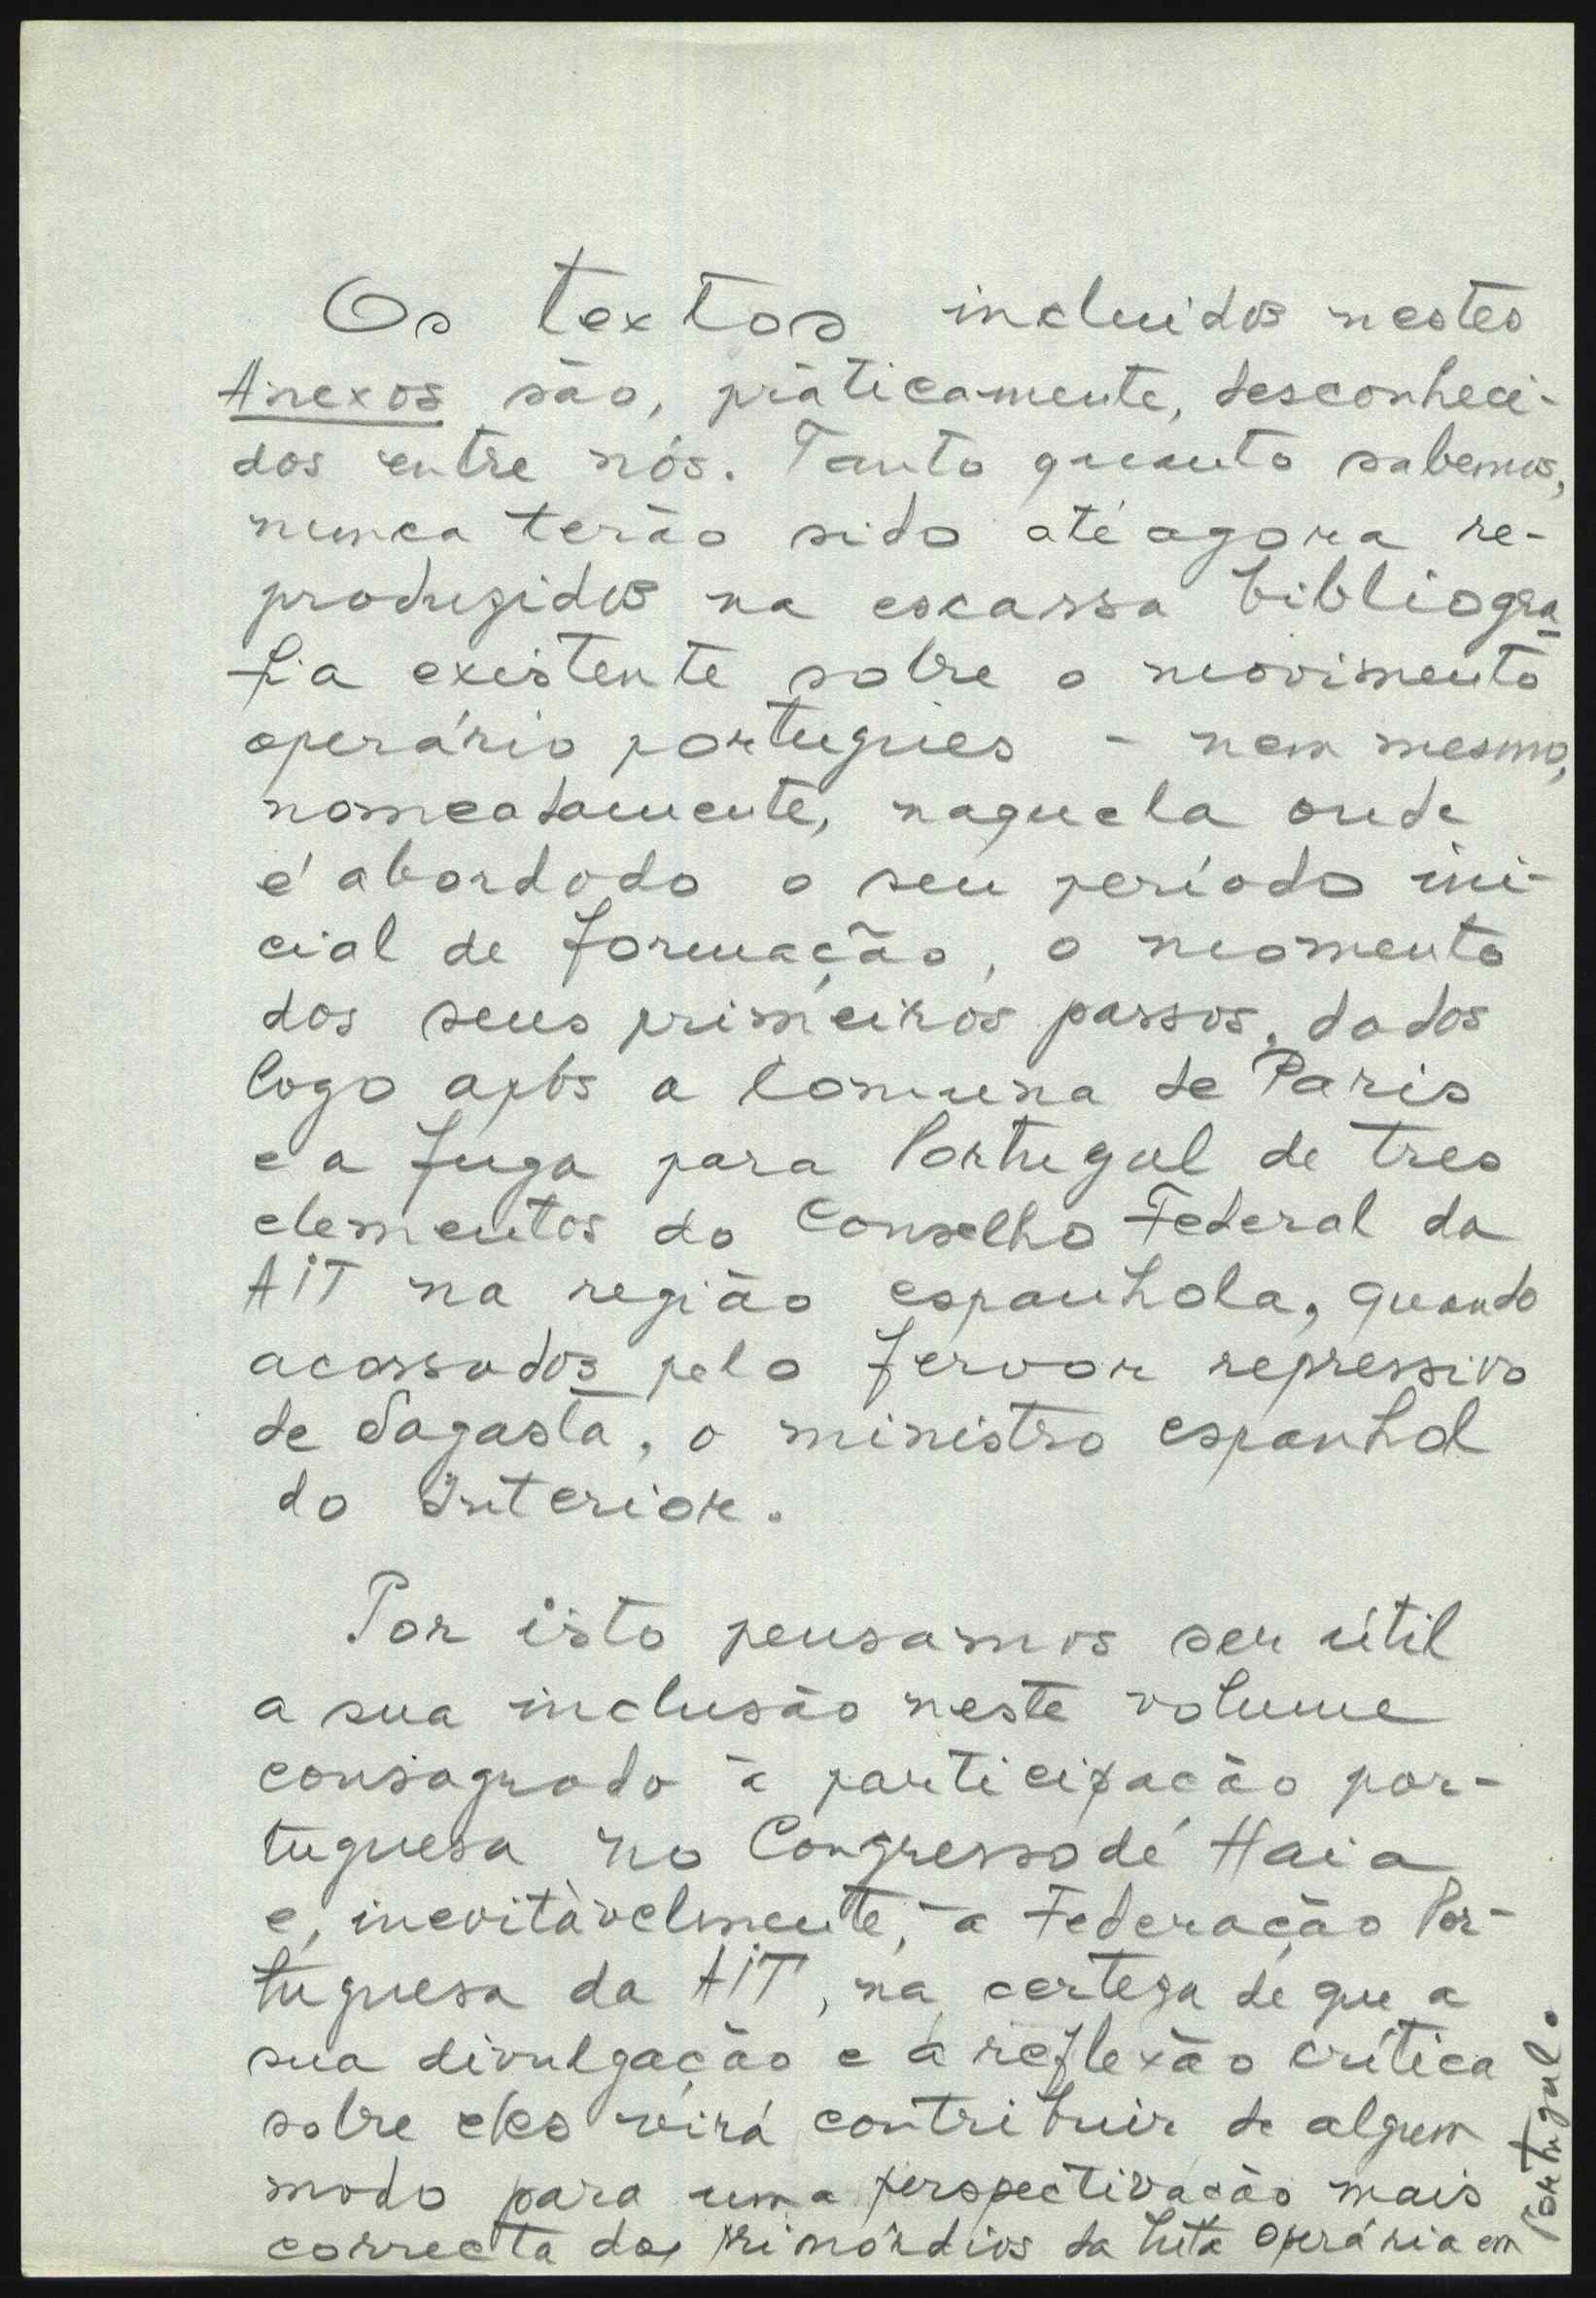 Os textos incluidos nestes
Anexos são, pràticamente, desconheci-
dos entre nós. Tanto quanto sabemos,
nunca terão sido até agora re-
produzidos na escassa bibliogra
fia existente sobre o movimento
operário português - nem mesmo,
nomeadamente, naquela onde
é abordado o seu período ini-
cial de formação, o momento
dos seus primeiros passos, dados
logo após a Comuna de Paris
e a fuga para Portugal de tres
elementos do Conselho Federal da
AIT na região espanhola, quando
acossados pelo fervor repressivo
de Sagasta, o ministro espanhol
do Interior.
Por isto pensamos ser útil
a sua inclusão neste volume
consagrado à participação por-
tuguesa no Congresso de Haia
e, inevitàvelmente, à Federação Por-
tuguesa da AIT, na certeza de que a
sua divulgação e a reflexão crítica
sobre eles virá contribuir de algum
modo para uma perspectivação mais
correcta dos primórdios da luta operária em
Portugal.